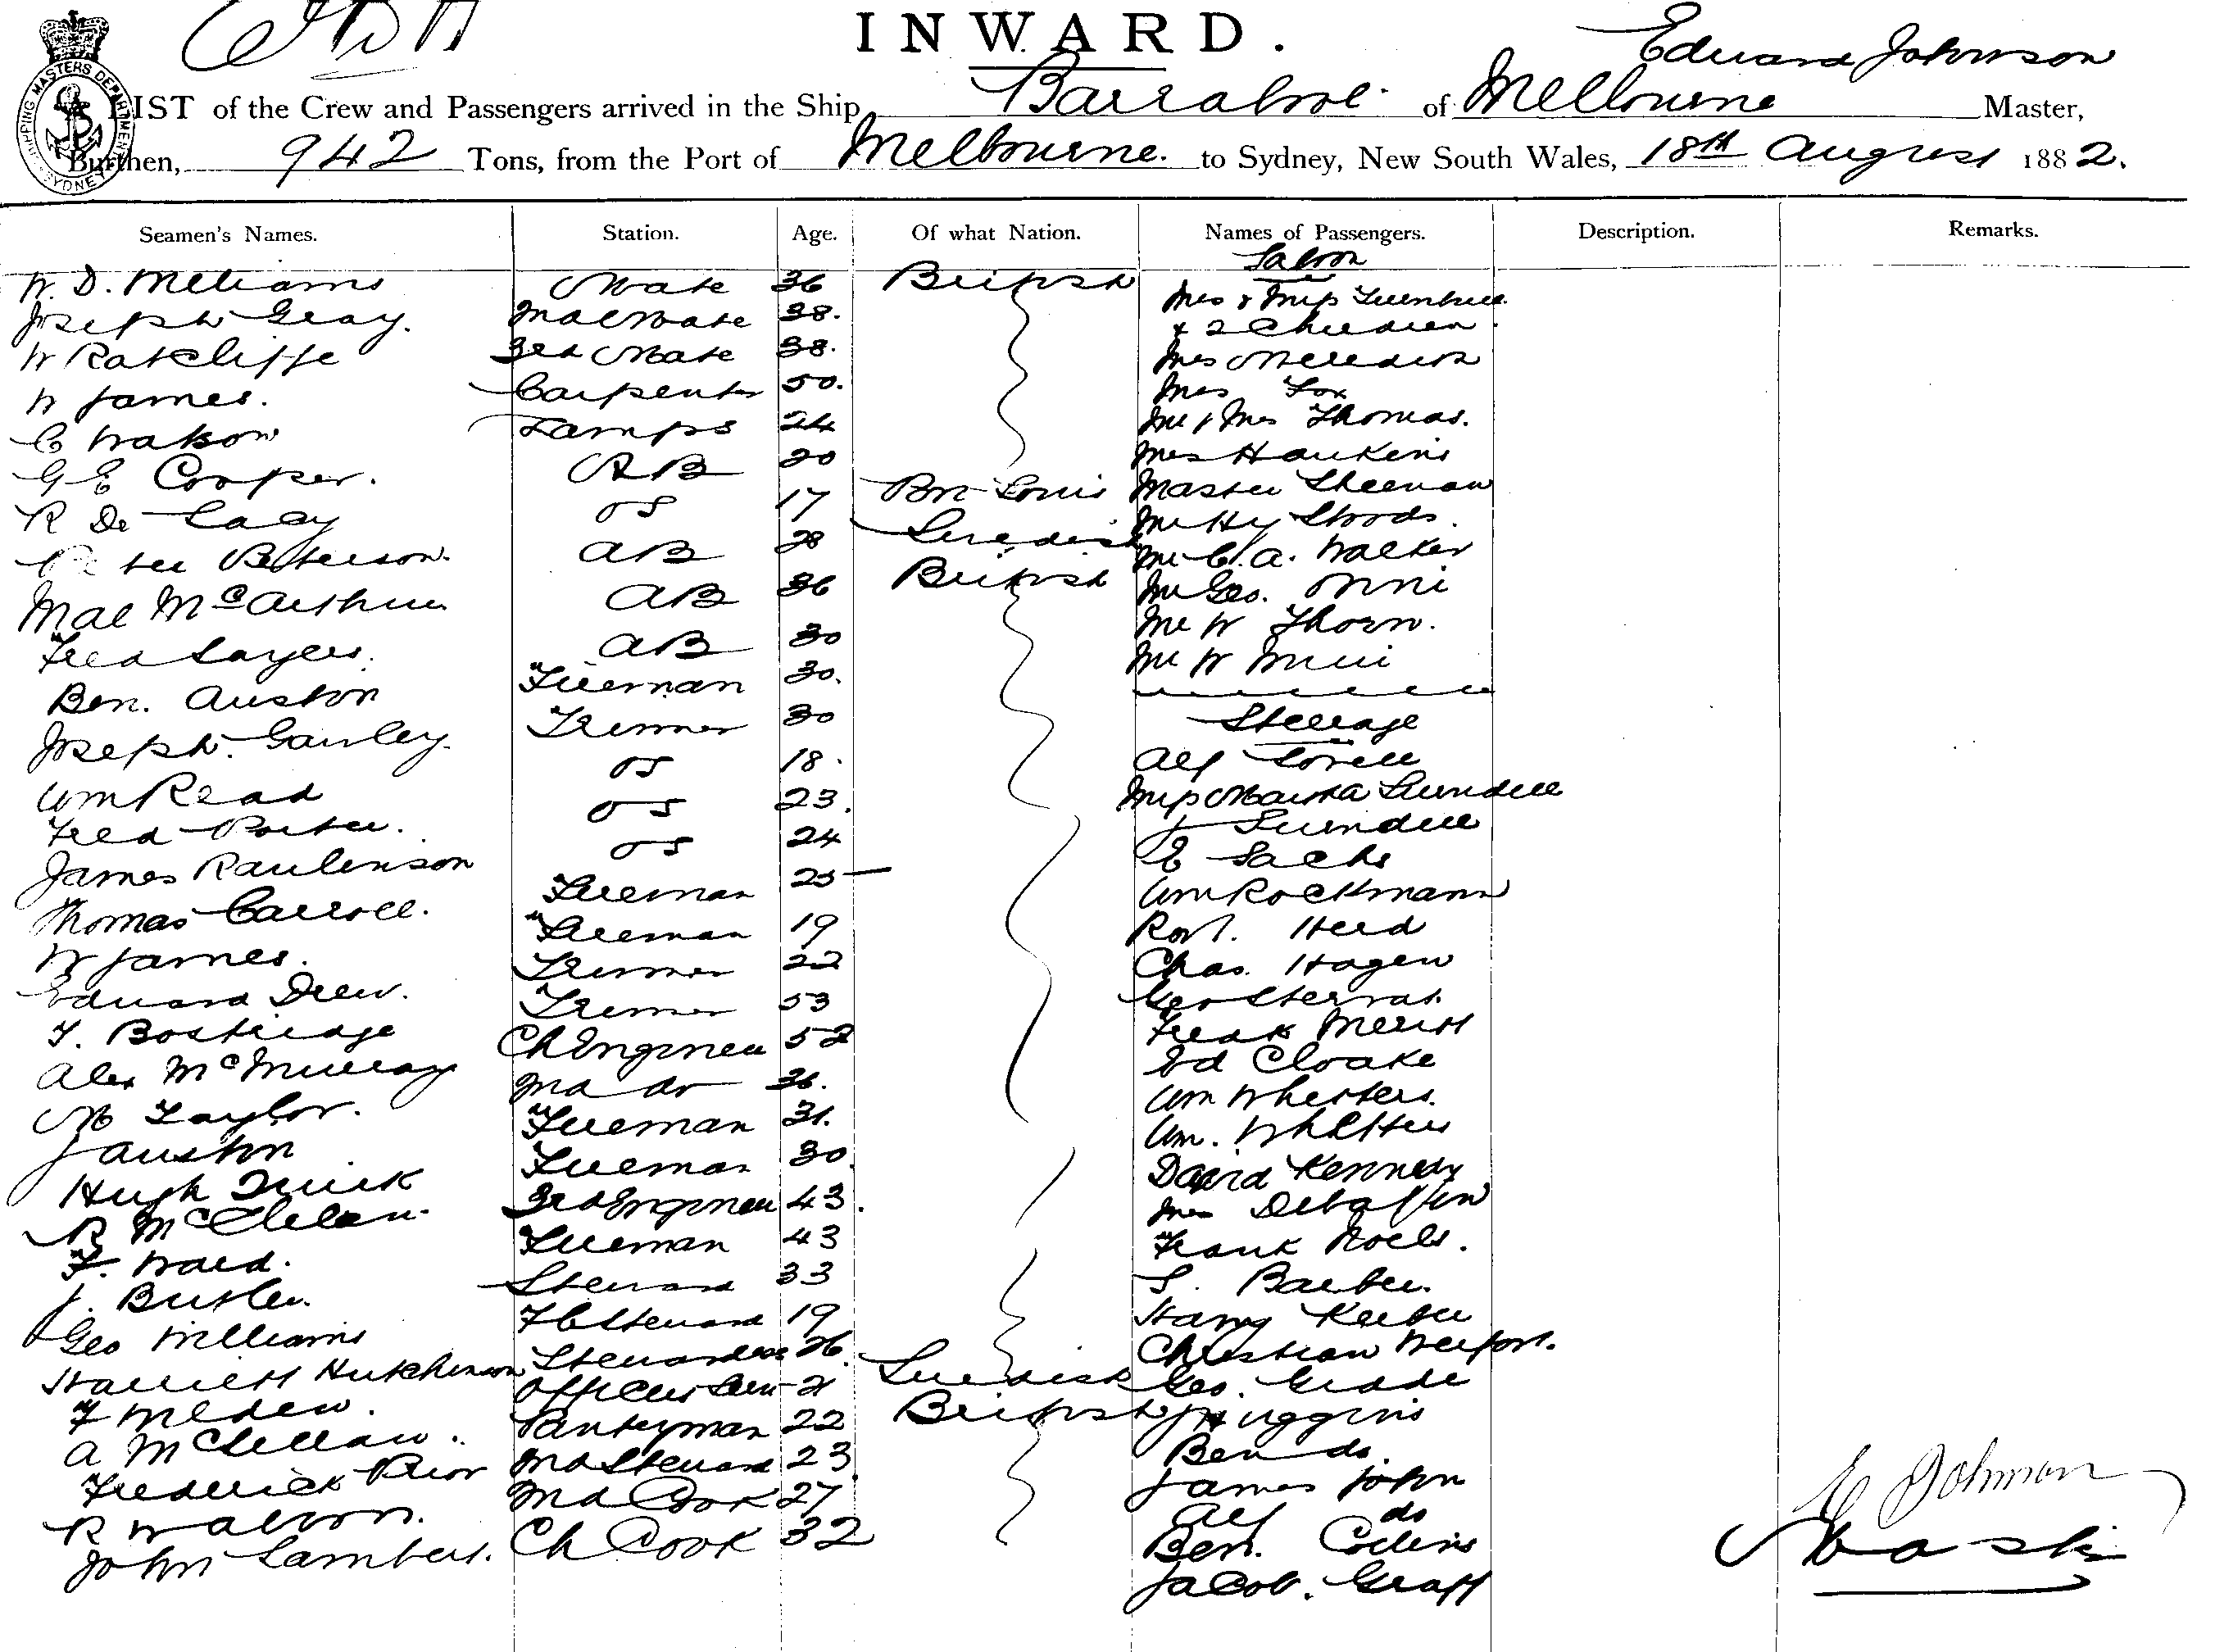 INWARD.
Edward Johnson
LIST of the Crew and Passengers arrived in the Ship Barrabool of Melbourne Master,
Burthen, 942 Tons, from the Port of Melbourne. to Sydney, New South Wales, 18th August 1882.
SHIPPING MASTERS DEPARTMENT SYDNEY
Seamen's Names. Station. Age. Of what Nation. Names of Passengers. Description. Remarks.
Saloon
W. D. Williams Mate 36 British
Joseph Gray. 2nd Mate 38.
W Ratcliffe 3rd Mate 38.
W James. Carpenter 50.
C Watson Lamps 24
G E Cooper. AB 20
R De Lacy OS 17
Peter Peterson. AB 28 Swedish
Mal McArthur AB 36 British
Fred Sayers. AB 30
Ben. Auston Fireman 30.
Joseph Gawley. Trimmer 30
Wm Read OS 18.
Fred Porter. OS 23.
James Raulinson OS 24
Thomas Carroll. Fireman 25
W James. Fireman 19
Edward Drew. Trimmer 22
T. Bostridge Trimmer 53
Alex McMurray Ch Engineer 52
M Taylor. 2nd do
J Austin Fireman 31.
Hugh Quick Fireman 30.
R McClelan. 3rd Engineer 43.
F. Ward. Fireman 43
J. Butler. Steward 33
Geo Williams F C Steward 19
Harriett Hutchinson Stewardess 26.
F Officers Serv 21 Swedish
A McLellan. Pantryman 22 British
Frederick Prior 2nd Steward 23
R Watson. 2nd Cook 27
John Lambert. Ch Cook 32
Mr & Mrs Turnbull
& 2 Children.
Mrs Meredith
Mrs Fox
Mr & Mrs Thomas.
Mrs Hawkins
Master Sheenan
Mr Hy Woods.
Mr C. A. Walker
Mr Geo.
Mr W Thorn.
Mr W Muir
Steerage
Alf Lovell
Miss Martha Lundell
J Lundell
E Sachs
Wm Rockmann
Robt. Herd
Chas. Hagen
Geo
Fredk Meritt
Ed Cloake
Wm Whetters.
Wm. Whetters
David Kennedy
Mrs
Frank Noels.
S. Barber.
Harry Kerber
Christian
Geo. Grade
J Huggins
Ben do.
James John
Alf do
Ben. Collins
Jacob. Graff
E Johnson
Master